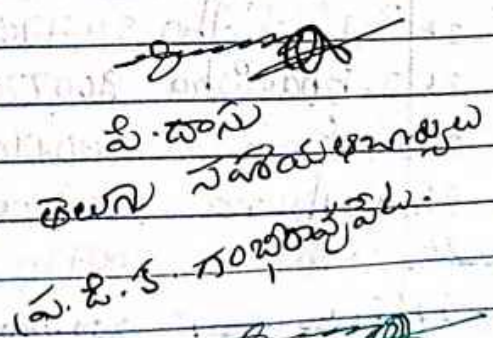 పి. దాసు
తెలుగు సహాయఆచార్యులు
ప్ర. డి. క. గంభీరావుపేట.